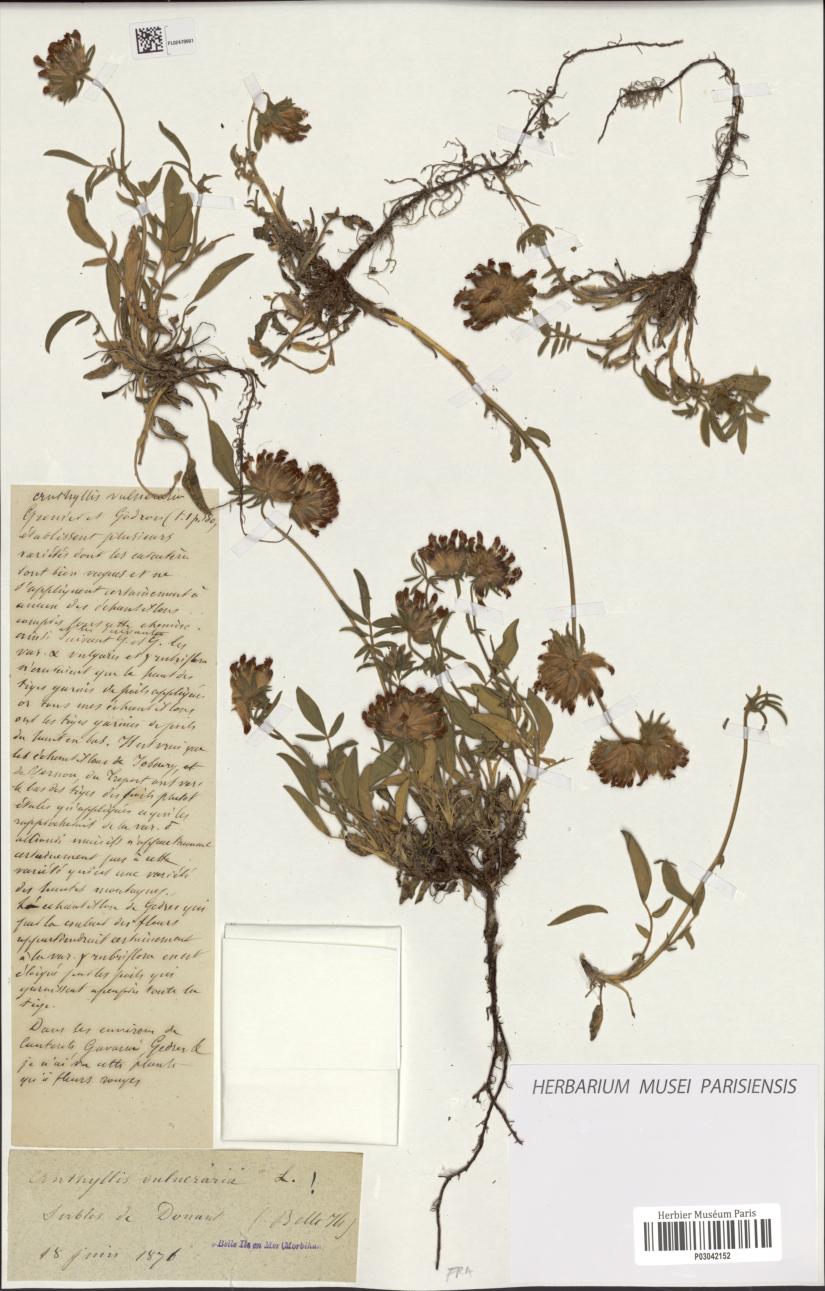 PL02479691
Anthyllis vulneraria
Grenier et Godron (t. 1 p. 380)
établissent plusieurs
variétés dont les caractères
sont bien vagues et ne
s'appliquent certainement à
aucun des échantillons
compris sous cette chemise
et les suivantes
ainsi suivant G. et G. les
var. α vulgaris et γ rubriflora
n'auraient que le haut des
tiges garnis de poils appliqués
or tous mes échantillons
ont les tiges garnies de poils
du haut en bas. Il est vrai que
les échantillons de Jobourg, et
de Vernon, du Treport ont vers
le bas des tiges des poils plutot
étalés qu'appliqués ce qui les
rapprocherait de la var. δ
allionii mais ils n'appartiennent
certainement pas à cette
variété qui est une variété
des hautes montagnes.
Le echantillon de Gedres qui
par la couleur des fleurs
appartiendrait certainement
à la var. γ rubriflora en est
éloigné par les poils qui
garnissent apeuprès toute la
tige.
Dans les environs de
Cauterets Gavarni Gedres &
je n'ai vu cette plante
qu'à fleurs rouges
Anthyllis vulneraria L. !
Sables de Donant (Belle Ile)
Belle Ile en Mer (Morbihan
18 juin 1876
FRA
HERBARIUM MUSEI PARISIENSIS
Herbier Muséum Paris
P03042152